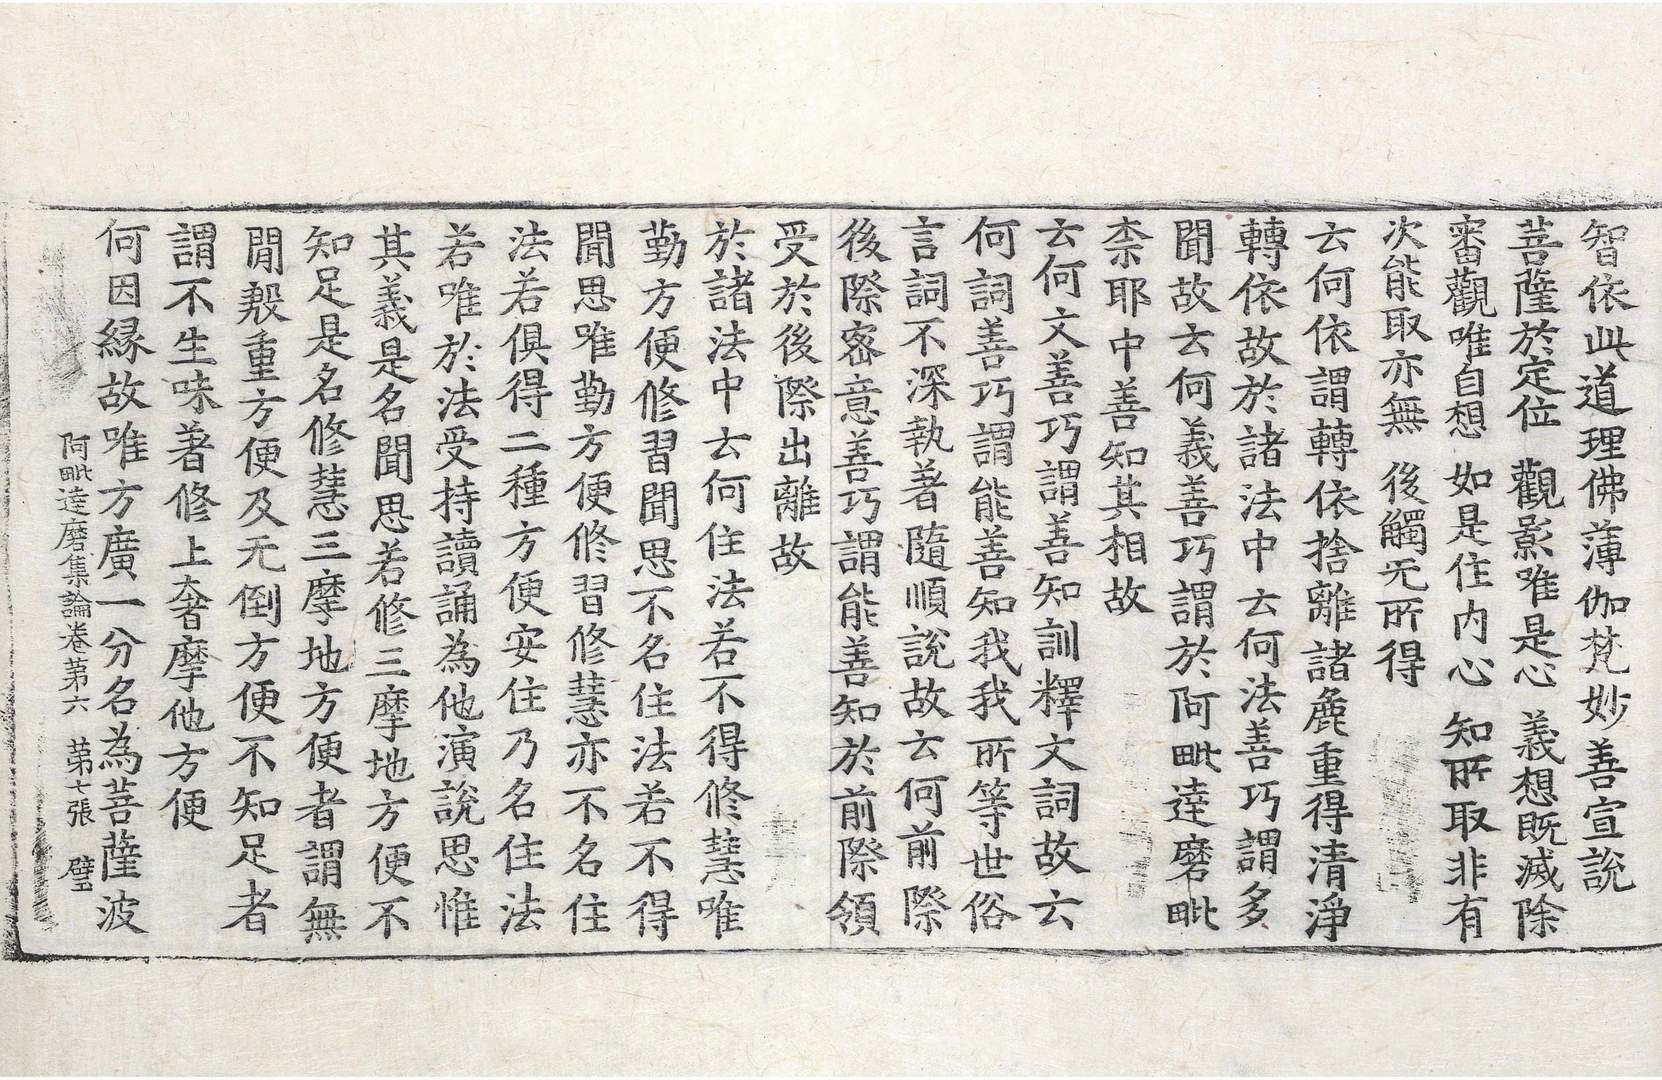 智依此道理佛薄伽梵妙善宣說
菩薩於定位 觀影唯是心 義想既滅除
審觀唯自想 如是住內心 知所取非有
次能取亦無 後觸无所得
云何依謂轉依捨離諸麁重得清淨
轉依故於諸法中云何法善巧謂多
聞故云何義善巧謂於阿毗達磨毗
柰耶中善知其相故
云何文善巧謂善知訓釋文詞故云
何詞善巧謂能善知我我所等世俗
言詞不深執著隨順說故云何前際
後際密意善巧謂能善知於前際領
受於後際出離故
於諸法中云何住法若不得修慧唯
勤方便修習聞思不名住法若不得
聞思唯勤方便修習修慧亦不名住
法若俱得二種方便安住乃名住法
若唯於法受持讀誦為他演說思惟
其義是名聞思若修三摩地方便不
知足是名修慧三摩地方便者謂無
閒㲉重方便及无倒方便不知足者
謂不生味著修上奢摩他方便
何因緣故唯方廣一分名為菩薩波
阿毗達磨集論卷第六 第七張 璧